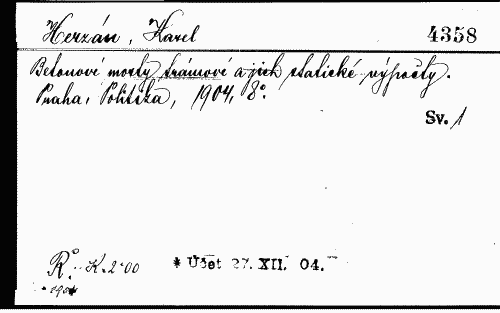 Herzán, Karel 4358
Betonové mosty trámové a jich statické výpočty.
Praha, Politika, 1904, 8°.
Sv. 1
R° K. 2·00 * Účet 27. XII. 04.